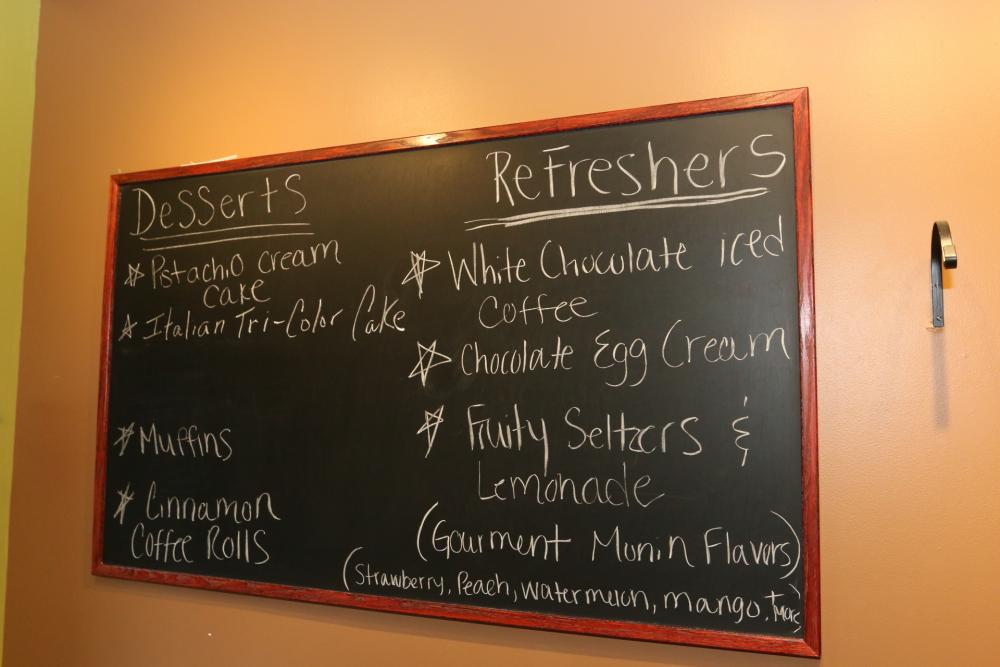 Desserts
Pstachio cream
cake
Italian Tri-Color Cake
Muffins
Cinnamon
Coffee Rolls
Refreshers
White Chocolate iced
Coffee
Chocolate Egg Cream
Fruity Seltzers &
Lemonade
(Gourment Monin Flavors)
(Strawberry, Peach, Watermelon, mango, + more)